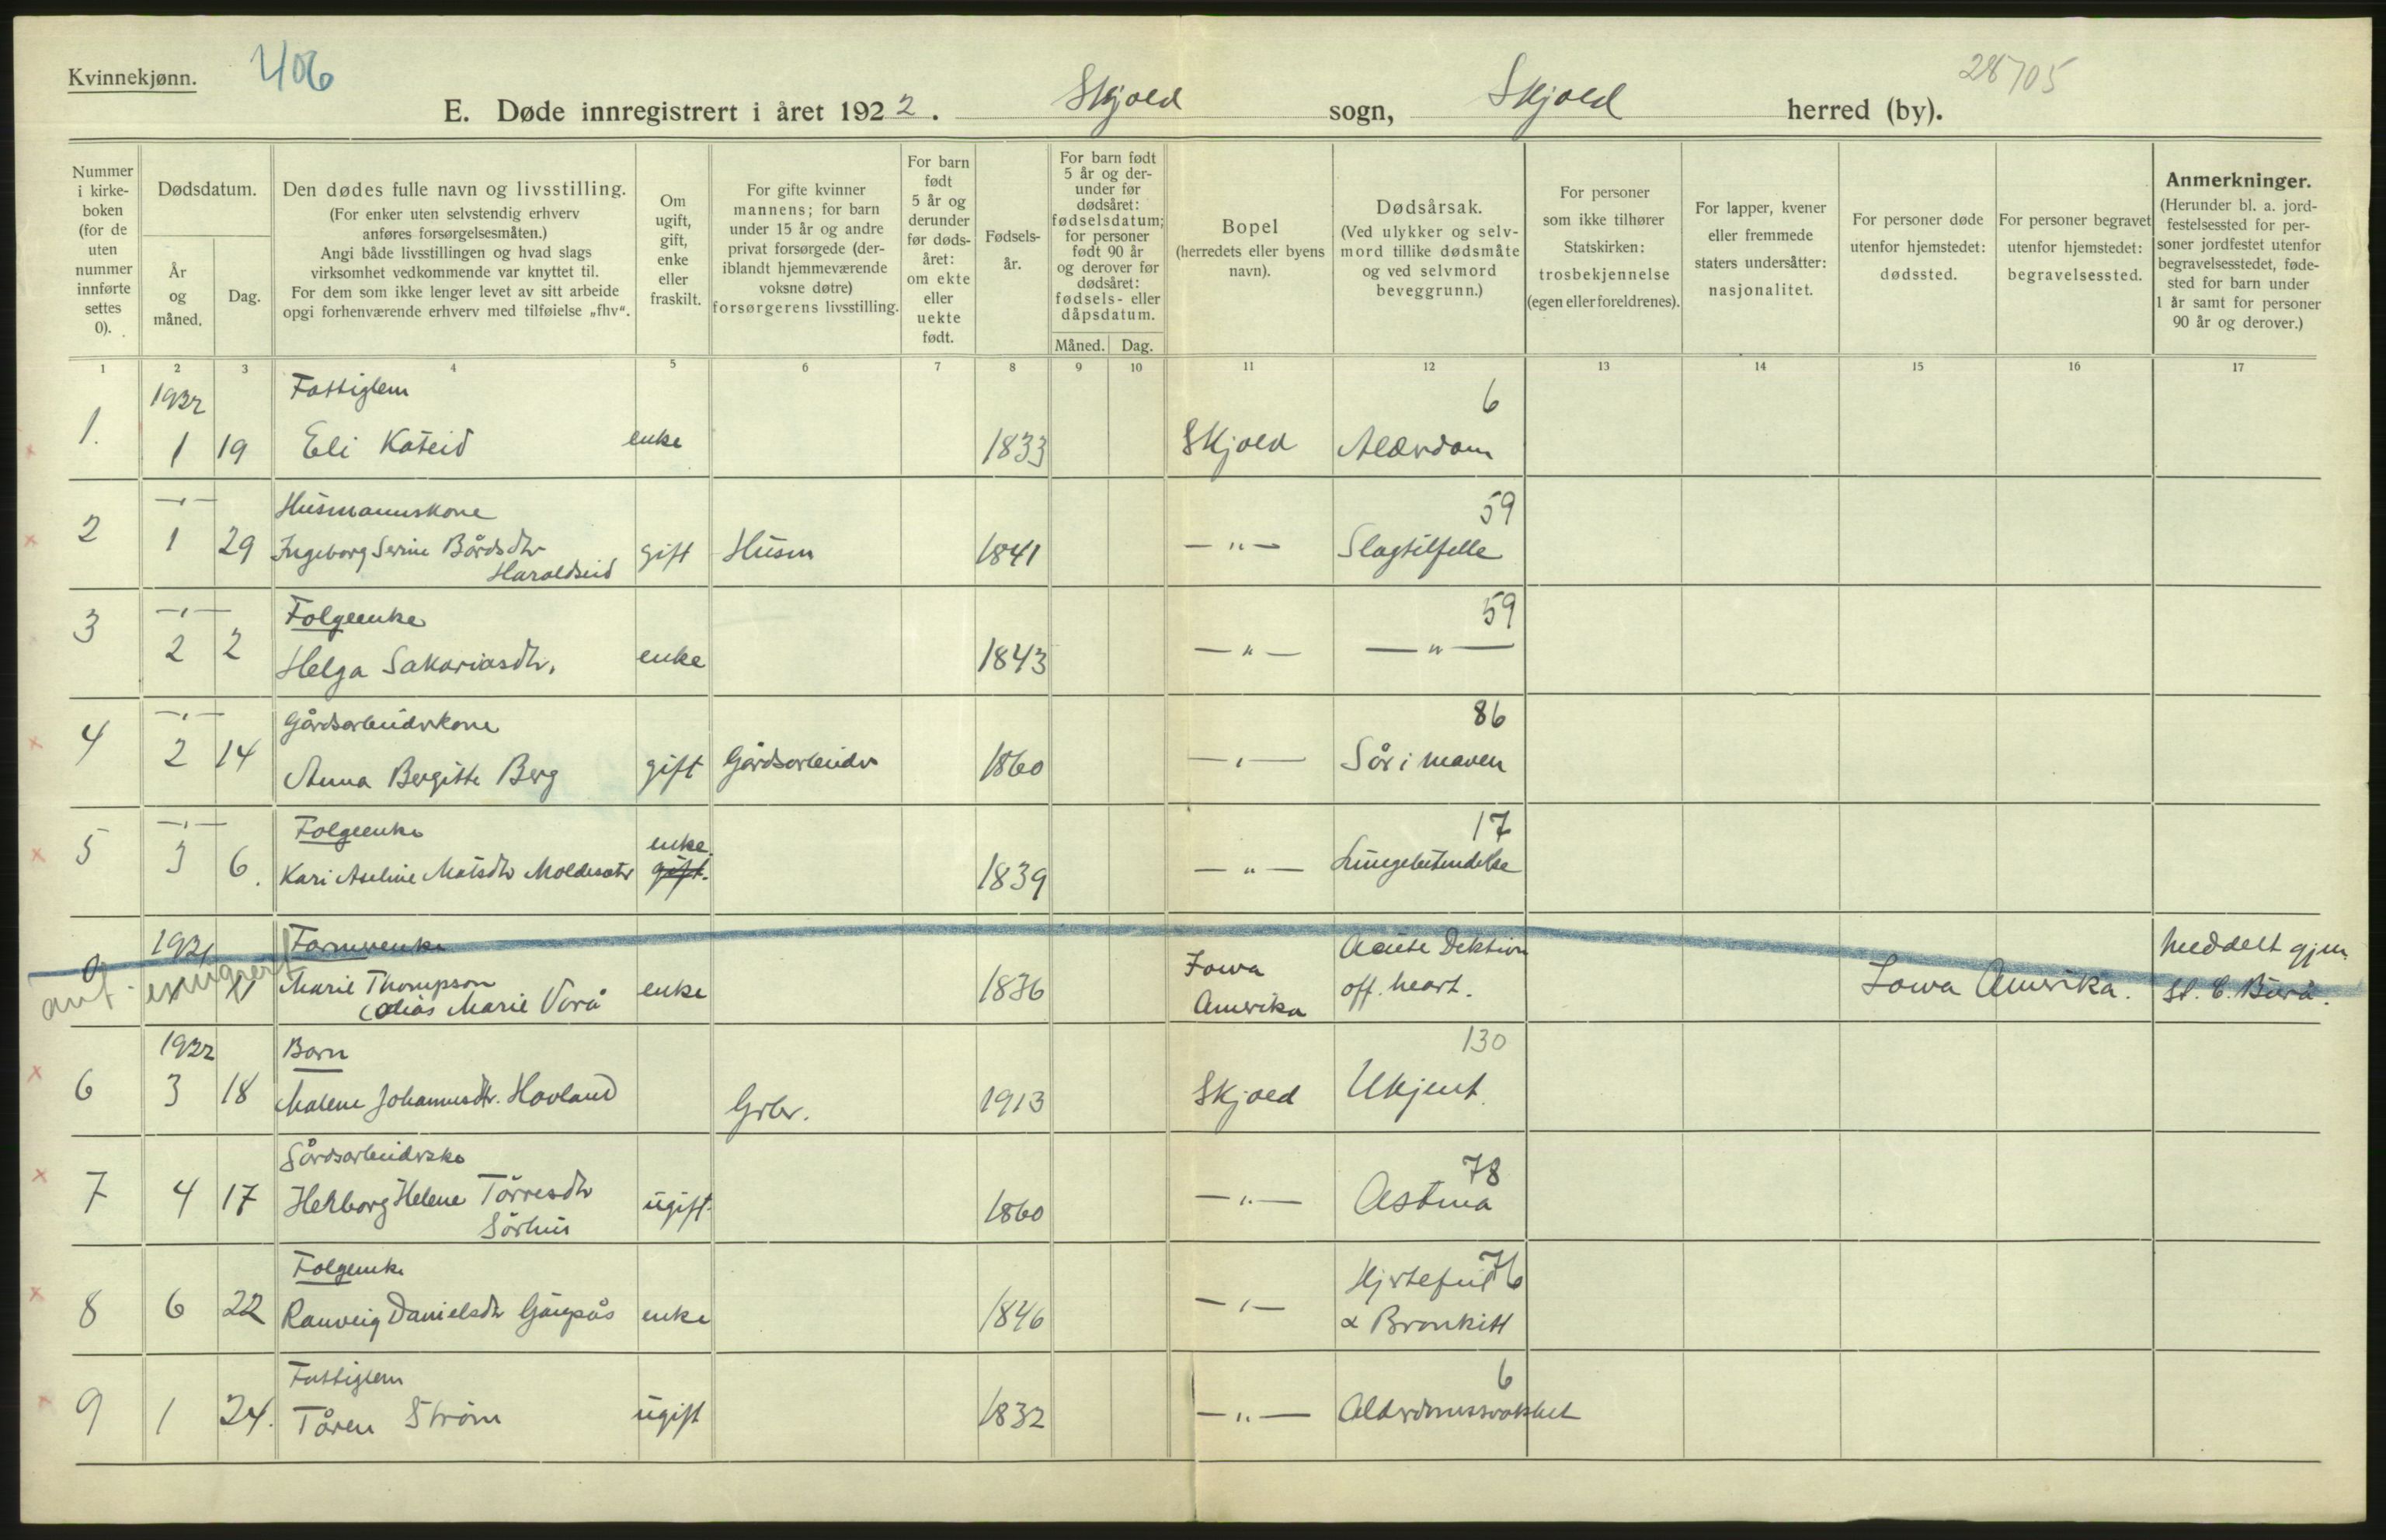 Kvinnekjønn.
406
28705
E. Døde innregistrert i året 1922. Skjold sogn, Skjold herred (by).
Nummer i kirke-boken (for de uten nummer innførte settes 0).
Dødsdatum.
År og måned.
Dag.
Den dødes fulle navn og livsstilling.
(For enker uten selvstendig erhverv anføres forsørgelsesmåten.)
Angi både livsstillingen og hvad slags virksomhet vedkommende var knyttet til.
For dem som ikke lenger levet av sitt arbeide opgi forhenværende erhverv med tilføielse „fhv“.
Om ugift, gift, enke eller fraskilt.
For gifte kvinner mannens; for barn under 15 år og andre privat forsørgede (deriblandt hjemmeværende voksne døtre) forsørgerens livsstilling.
For barn født 5 år og derunder før dødsåret: om ekte eller uekte født.
Fødselsår.
For barn født 5 år og derunder før dødsåret: fødselsdatum; for personer født 90 år og derover før dødsåret: fødsels- eller dåpsdatum.
Måned. Dag.
Bopel
(herredets eller byens navn).
Dødsårsak.
(Ved ulykker og selvmord tillike dødsmåte og ved selvmord beveggrunn.)
For personer som ikke tilhører Statskirken: trosbekjennelse (egen eller foreldrenes).
For lapper, kvener eller fremmede staters undersåtter: nasjonalitet.
For personer døde utenfor hjemstedet: dødssted.
For personer begravet utenfor hjemstedet: begravelsessted.
Anmerkninger.
(Herunder bl. a. jordfestelsessted for personer jordfestet utenfor begravelsesstedet, fødested for barn under 1 år samt for personer 90 år og derover.)
1 2 3 4 5 6 7 8 9 10 11 12 13 14 15 16 17
1922 Fattiglem 6
1. 1 19 Eli Kateid enke 1833 Skjold Alderdom
—„— Husmannskone 59
2 1 29 Ingeborg Serine Bårdsdtr Haraldseid gift Husm 1841 —„— Slagtilfelle
—„— Folgeenke 59
3 2 2 Helga Sakariasdtr. enke 1843 —„— —„—
—„— Gårdsarbeiderkone 86
4 2 14 Anna Bergitte Berg gift Gårdsarbeider 1860 —„— Sår i maven
—„— Folgeenke enke. 17
5 3 6. Kari Aseline Matsdtr gift. 1839 —„— Lungebetendelse
1921 Farmerenke Acute off. heart. Meddelt gjm.
0 Marie Thompson enke 1836 Iowa Amerika Iowa Amerika. St. C. Byrå.
(alias Marie Vorå
ant. emigrert
1922 Barn 130
6 3 18 Malene Johannesdtr. Hovland Grbr. 1913 Skjold Ukjent.
Gårdsarbeiderske 78
7 4 17 Helene Tørresdtr Sørhus ugift. 1860 —„— Astma
Folgeenke 76
8 6 22 Ranveig Danielsdtr Gaupås enke 1846 —„— Hjertefeil & Bronkitt
Fattiglem 6
9 1 24. Tåren Strøm ugift 1832 —„— Alderdomssvakhet